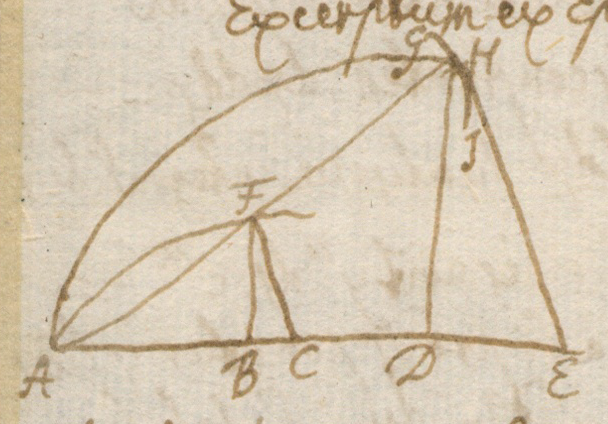 Excerptum ex
G H
I
F
A B C D E